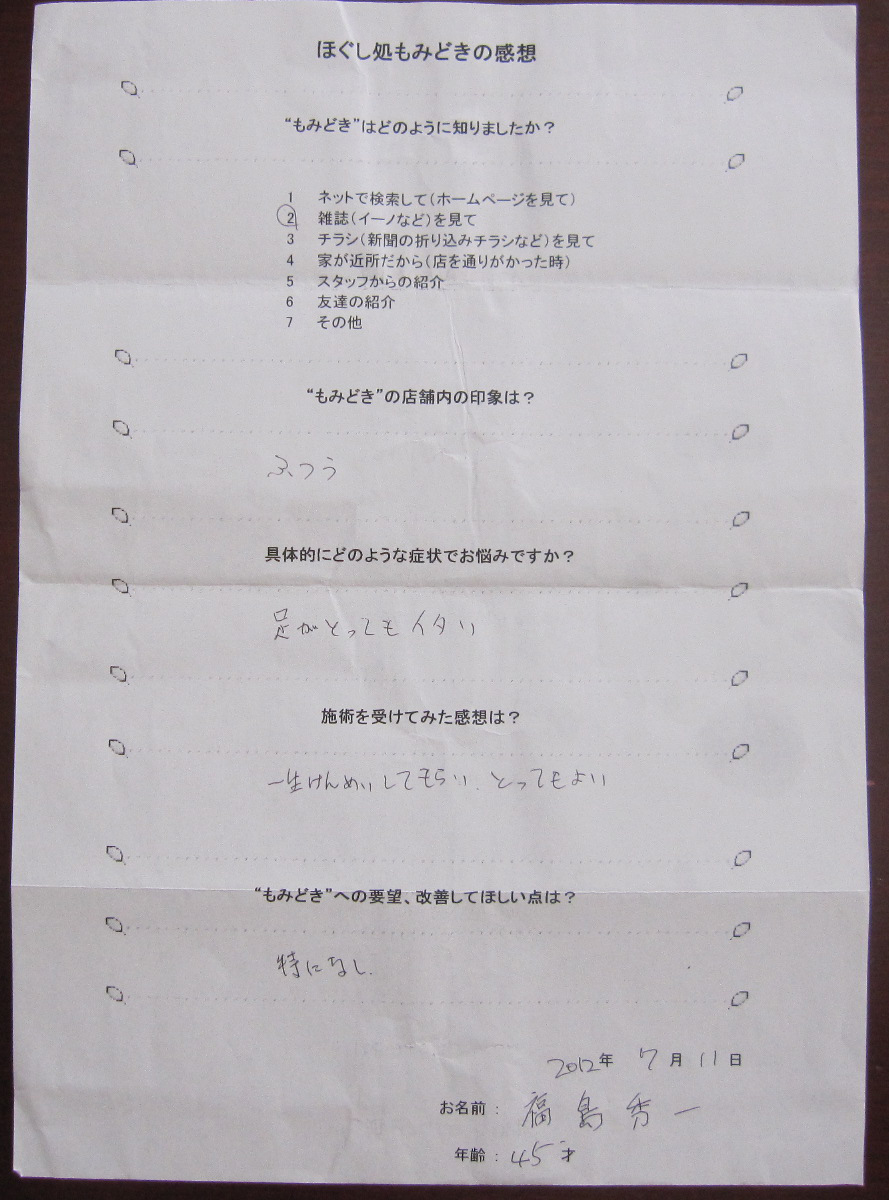 ほぐし処もみどきの感想
“もみどき”はどのように知りましたか？
1 ネットで検索して（ホームページを見て）
2 雑誌（イーノなど）を見て
3 チラシ（新聞の折り込みチラシなど）を見て
4 家が近所だから（店を通りがかった時）
5 スタッフからの紹介
6 友達の紹介
7 その他
“もみどき”の店舗内の印象は？
ふつう
具体的にどのような症状でお悩みですか？
足がとってもイタい
施術を受けてみた感想は？
一生けんめいしてもらい、とってもよい
“もみどき”への要望、改善してほしい点は？
特になし.
2012年 7月11日
お名前： 福島秀一
年齢：45才